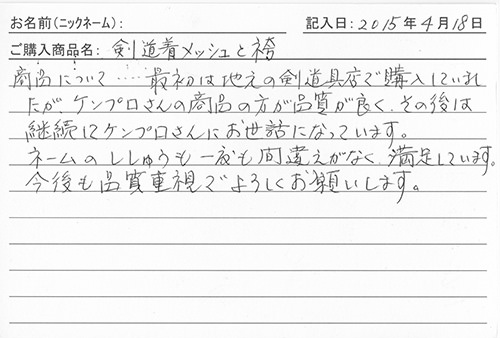 お名前(ニックネーム): 記入日: 2015年4月18日
ご購入商品名: 剣道着メッシュと袴
商品について…… 最初は地元の剣道具店で購入していれ
たが、ケンプロさんの商品の方が品質が良く、その後は
継続にケンプロさんにお世話になっています。
ネームのししゅうも一度も間違えがなく、満足しています。
今後も品質重視でよろしくお願いします。